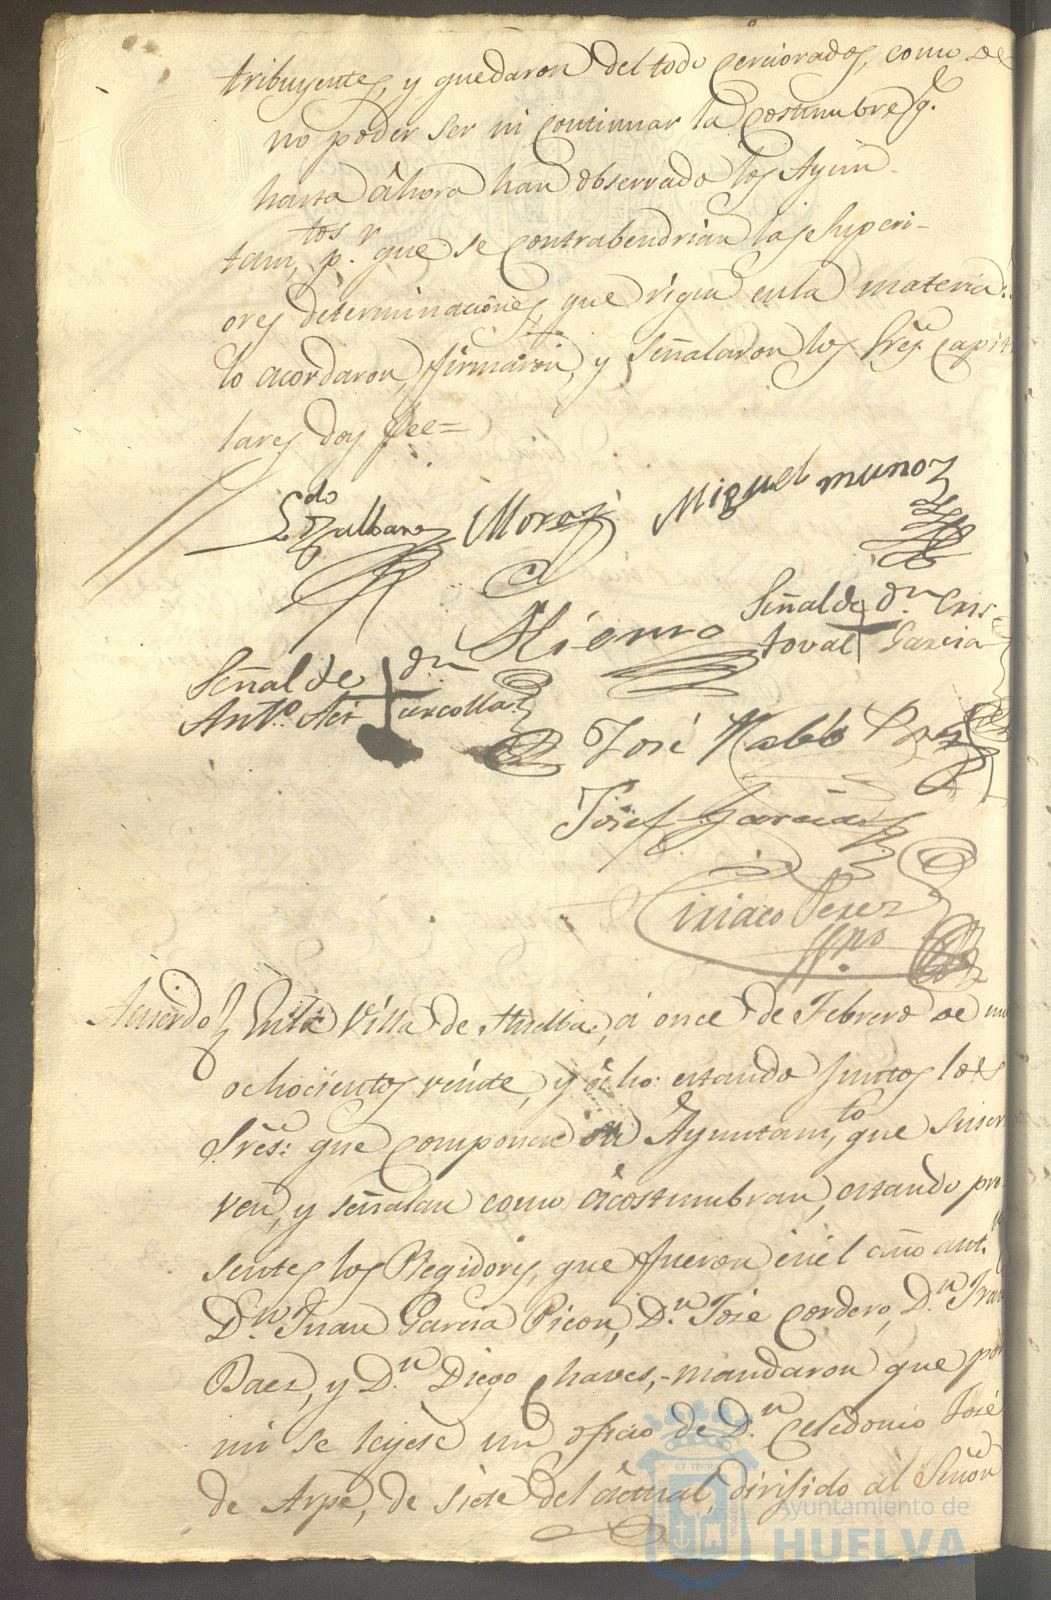 tribuyentes, y quedaron del todo cerciorados, como de
no poder ser ni continuar la costumbre q.e
hasta ahora han observado los Ayun-
tam.tos p.r que se contrabendrian las Superi-
ores determinaciones, que rigen enla materia:
lo acordaron, firmaron, y señalaron los Sres. capitu
lares doy fee=
Ldo Zalbarez Mora Miguel munoz
Hierro
Señal de + d.n Cris
toval Garcia
Señal de + d.n
Ant.o
José Perez
Josef Garcia
Ciriaco Perez
Ss.no
Acuerdo
Enla Villa de Huelba, á once de Febrero de mil
ochocientos veinte, y ocho: estando juntos los
Sres: que componen su Ayuntam.to, que suscri
ven, y señalan como acostumbran, estando pre
sentes los Regidores, que fueron enel año ant.r
D.n Juan Garcia Picon, D.n José Cordero, D.n Fran
Baez, y D.n Diego Chaves,- mandaron que por
mi se leyese un oficio de D.n Celedonio José
de Arpe, de siete del actual, dirijido al Señor
ET TERRA
Ayuntamiento de
HUELVA